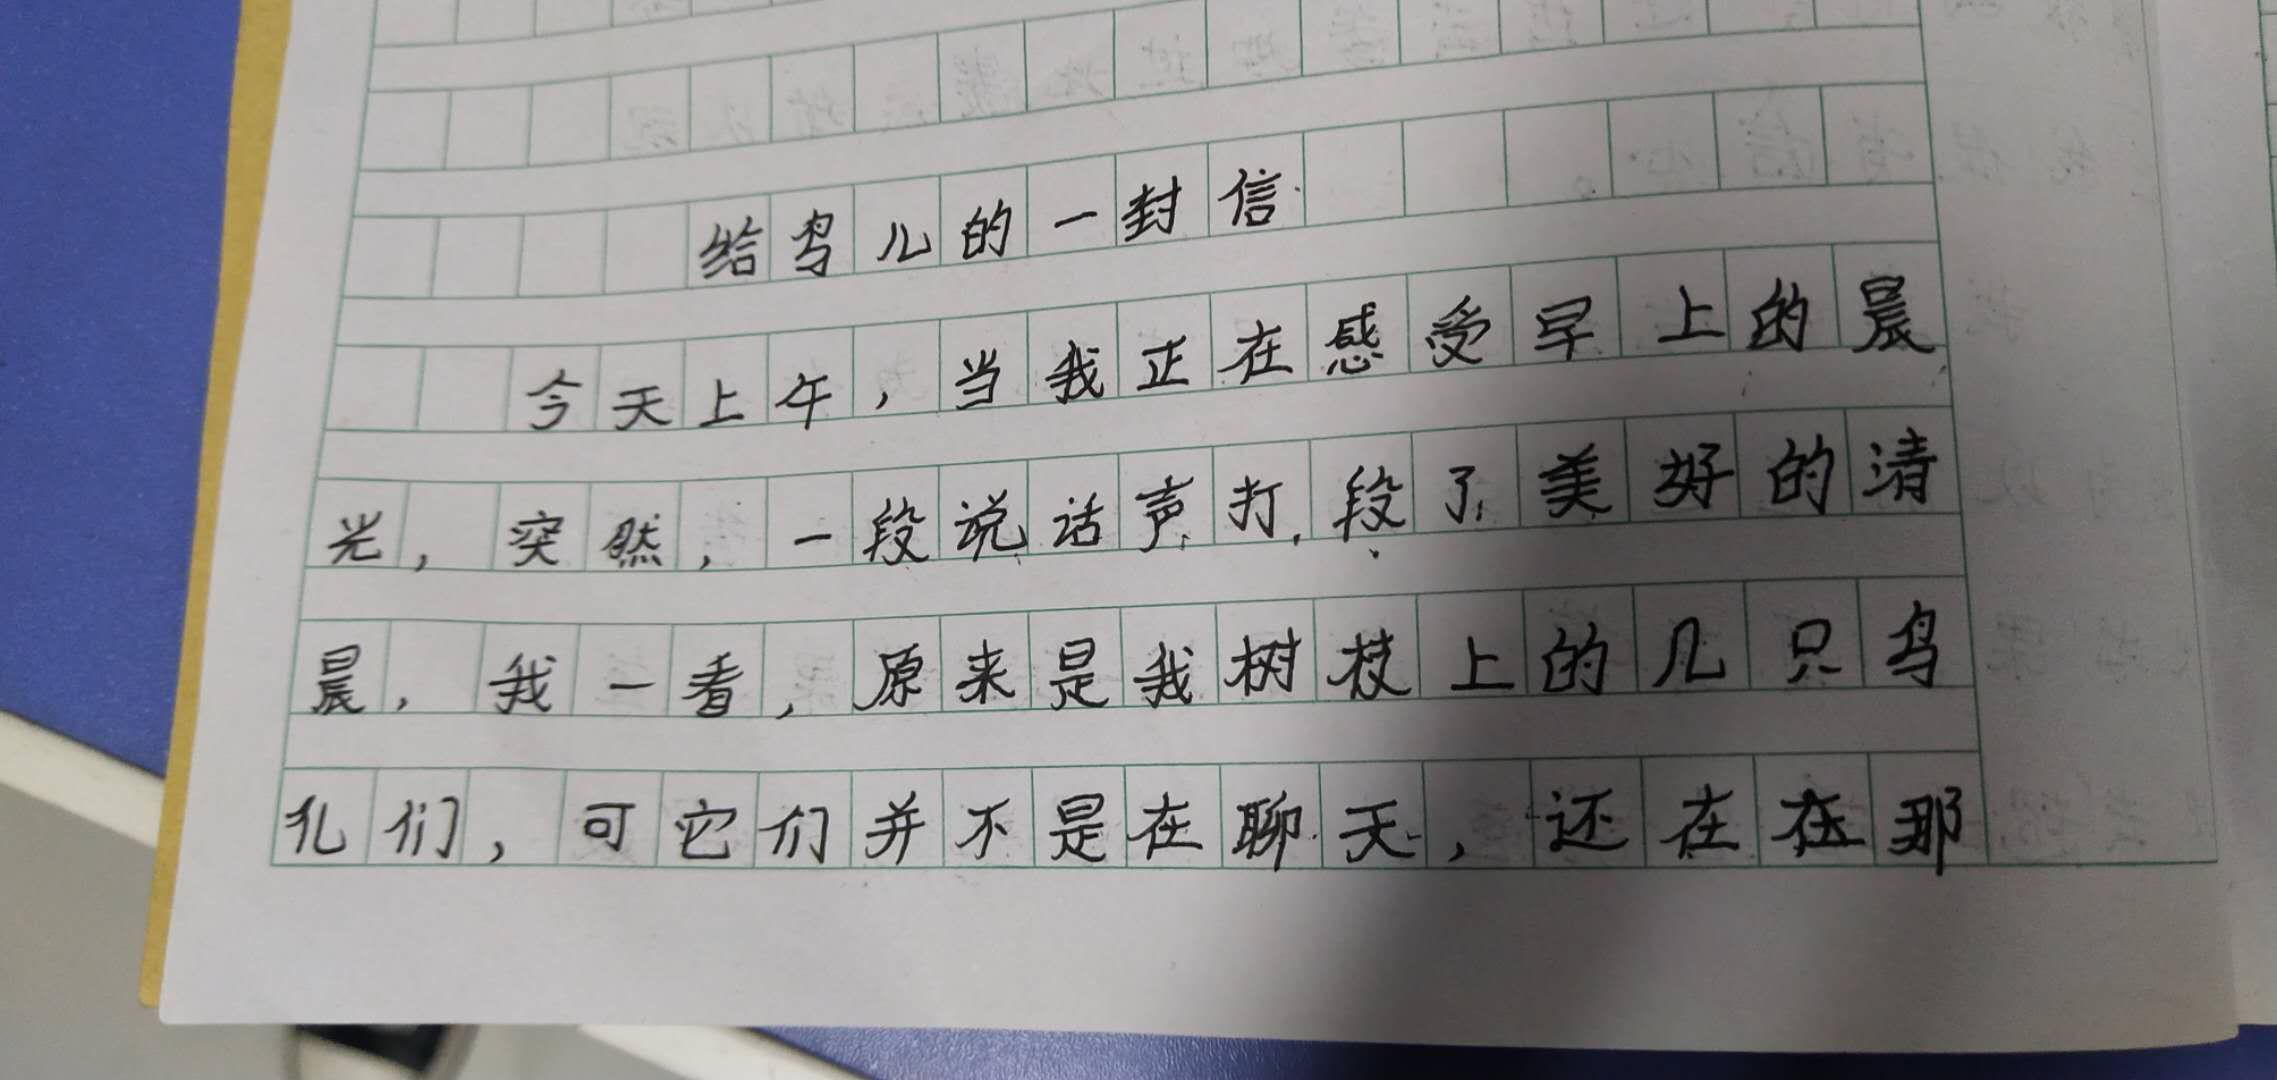 给鸟儿的一封信
今天上午，当我正在感受早上的晨
光，突然，一段说话声打段了美好的清
晨，我一看，原来是我树枝上的几只鸟
儿们，可它们并不是在聊天，还在在那